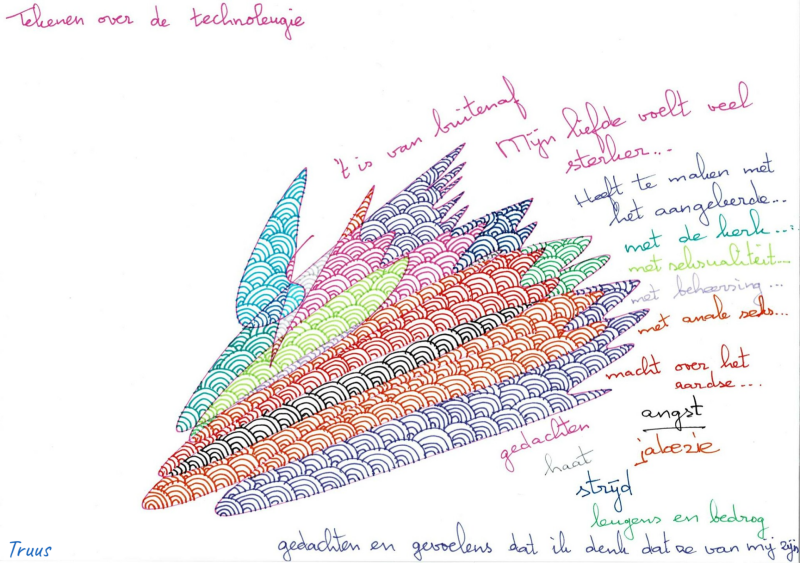 Tekenen over de technoleugie
't is van buitenaf
Mijn liefde voelt veel
sterker...
Heeft te maken met
het aangeleerde...
met de kerk....
met seksualiteit...
met beheersing...
met anale seks...
macht over het
aardse....
angst
jaloezie
gedachten
haat
strijd
leugens en bedrog
gedachten en gevoelens dat ik denk dat ze van mij zijn
Truus